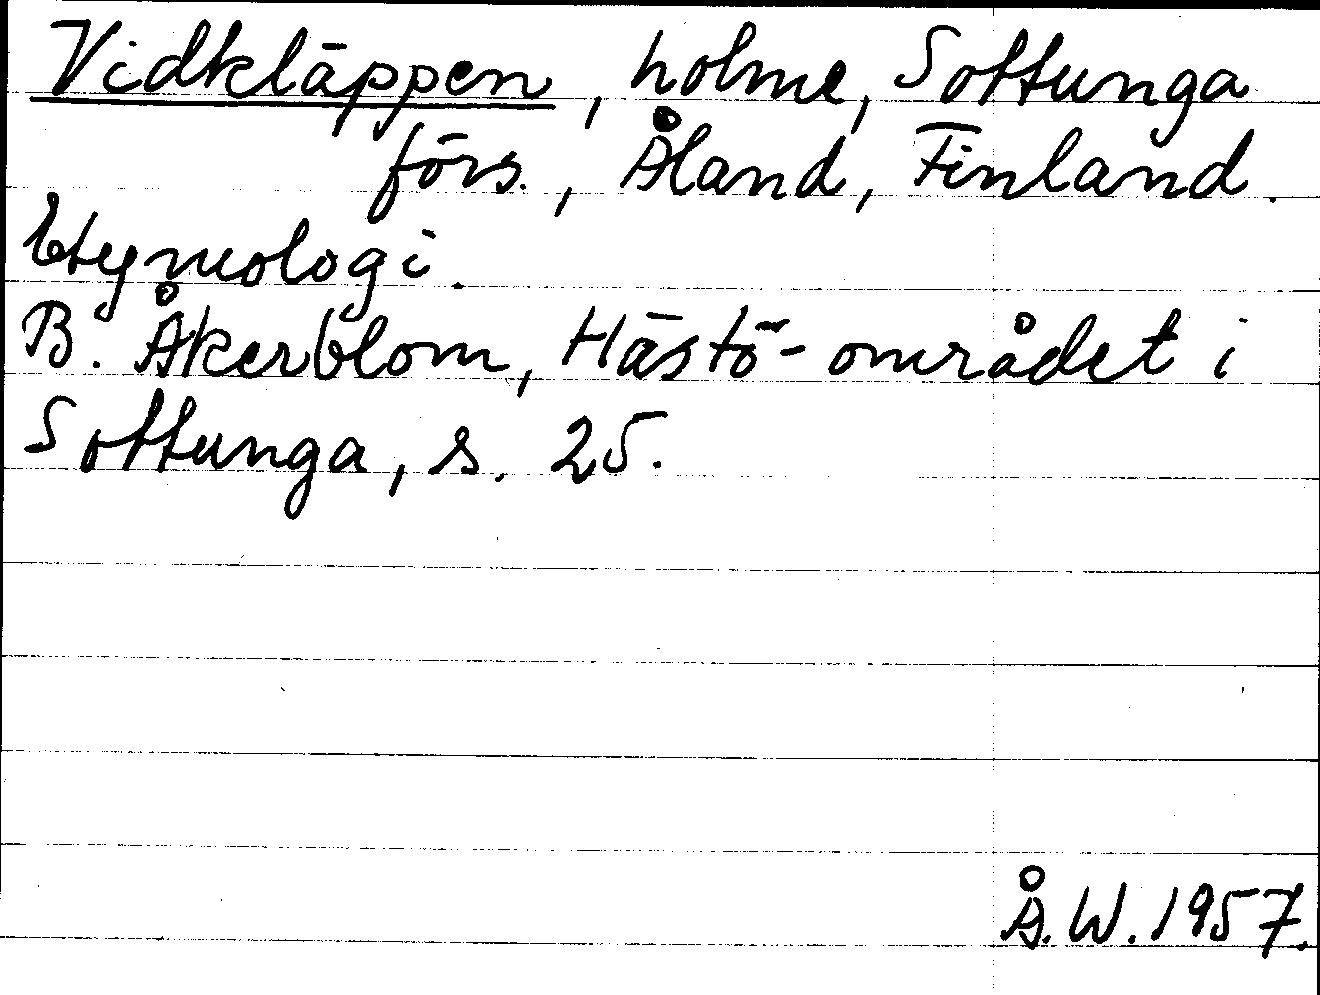 Vidkläppen, holme, Sottunga
förs., Åland, Finland.
Etymologi.
B. Åkerblom, Hästö-området i
Sottunga, s. 25.
Å.W. 1957.